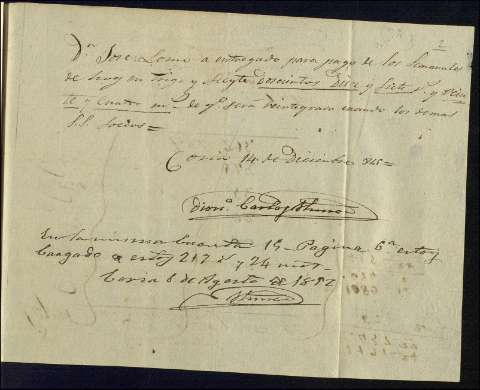 2
Dn Jose Lomo a entregado para pago de los semanales
de hoy en trigo y docientos Diez y siete rs y Vein
te y cuatro ms de qe será reintegrado cuando los demas
S.S. socios=
Coria 14 de Diciembre 845=
Diono Carlos
En la misma Cuarta 19 Pagina 6a estoy
Cargado a estos 217 rs y 24 mrs
Coria 6 de Agosto de 1852